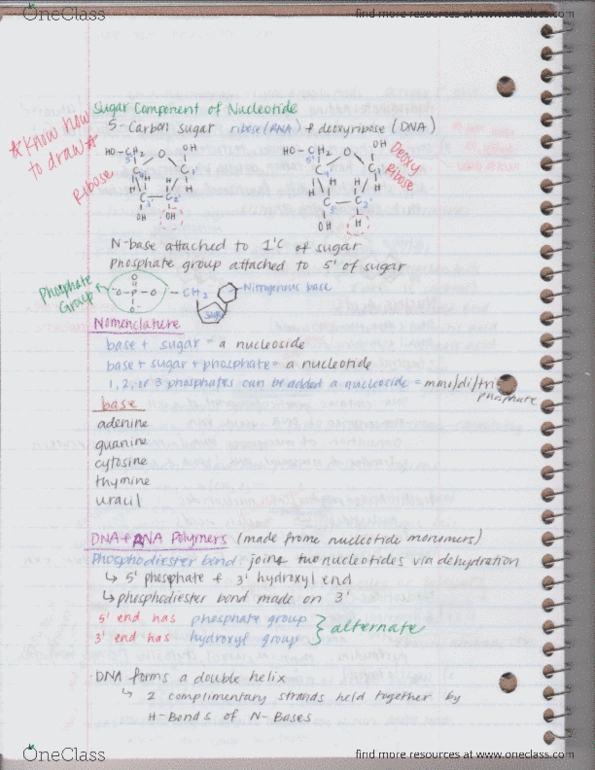 OneClass
find more resources at www.oneclass.com
Sugar Component of Nucleotide
5-Carbon sugar ribose (RNA) + deoxyribose (DNA)
☆ Know how to draw ☆
Ribose
HO-CH₂ O OH
5' C 4' C 1' H H H H C 3' C 2' OH OH
Deoxy Ribose
HO-CH₂ O OH
5' C 4' C 1' H H H H C 3' C 2' OH H
N-base attached to 1'C of sugar
Phosphate group attached to 5' of sugar
Phosphate Group
O ⁻O-P-O-CH₂ O⁻
Nitrogenous base
sugar
Nomenclature
base + sugar = a nucleoside
base + sugar + phosphate = a nucleotide
1, 2, or 3 phosphates can be added a nucleoside = mono/di/tri
phosphate
base
adenine
guanine
cytosine
thymine
uracil
DNA + RNA Polymers (made frome nucleotide monumers)
Phosphodiester bond: joins two nucleotides via dehydration
↳ 5' phosphate + 3' hydroxyl end
↳ phosphodiester bond made on 3'
5' end has phosphate group
3' end has hydroxyl group } alternate
DNA forms a double helix
↳ 2 complimentary strands held together by
H-Bonds of N-Bases
OneClass
find more resources at www.oneclass.com